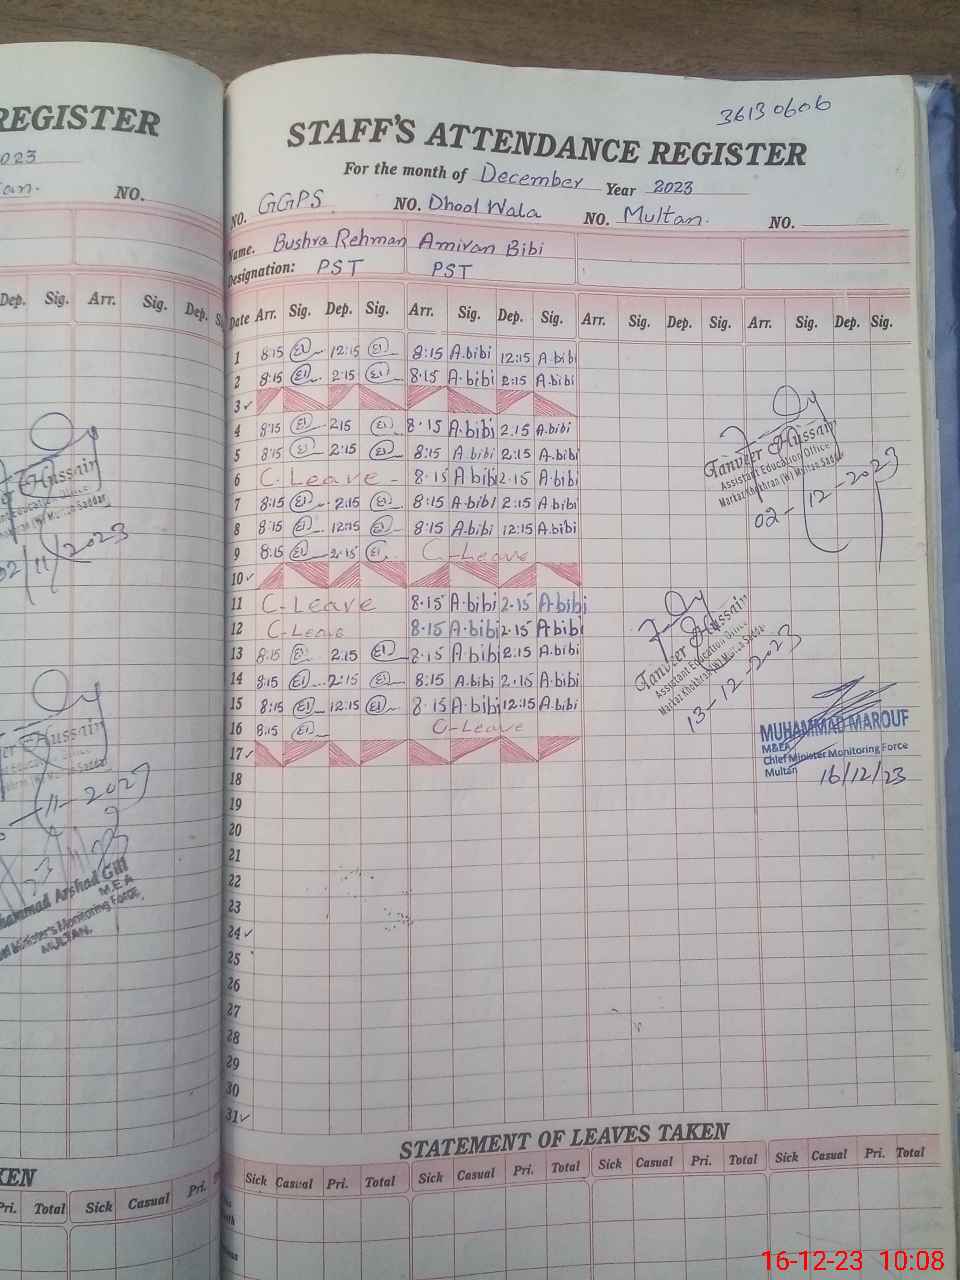 REGISTER
2023
NO.
Dep. Sig. Arr. Sig. Dep.
36130606
STAFF'S ATTENDANCE REGISTER
For the month of December Year 2023
NO. GGPS NO. Dhool Wala NO. Multan. NO.
Name. Bushra Rehman Amiran Bibi
Designation: PST PST
Date Arr. Sig. Dep. Sig. Arr. Sig. Dep. Sig. Arr. Sig. Dep. Sig. Arr. Sig. Dep. Sig.
1 8:15 12:15 8:15 A.bibi 12:15 A.bibi
2 8:15 2:15 8:15 A.bibi 2:15 A.bibi
3 ✓
4 8:15 2:15 8:15 A.bibi 2:15 A.bibi
5 8:15 2:15 8:15 A.bibi 2:15 A.bibi
6 C. Leave - 8:15 A.bibi 2:15 A.bibi
7 8:15 2:15 8:15 A.bibi 2:15 A.bibi
8 8:15 12:15 8:15 A.bibi 12:15 A.bibi
9 8:15 2:15 C-Leave
10 ✓
11 C-Leave 8:15 A.bibi 2:15 A.bibi
12 C-Leave 8:15 A.bibi 2:15 A.bibi
13 8:15 2:15 8:15 A.bibi 2:15 A.bibi
14 8:15 2:15 8:15 A.bibi 2:15 A.bibi
15 8:15 12:15 8:15 A.bibi 12:15 A.bibi
16 8:15 C-Leave
17 ✓
18
19
20
21
22
23
24 ✓
25
26
27
28
29
30
31 ✓
Tanveer Hussain
Assistant Education Office
Markaz Khokhran (W) Multan Saddar
02-12-2023
Tanveer Hussain
Assistant Education Office
Markaz Khokhran (W) Multan Saddar
13-12-2023
MUHAMMAD MAROUF
M&EA
Chief Minister Monitoring Force
Multan
16/12/23
Hussain
02/11/2023
Hussain
-11-2023
Muhammad Arshad Gill
M.E.A
Minister's Monitoring Force
MULTAN.
STATEMENT OF LEAVES TAKEN
Sick Casual Pri. Total Sick Casual Pri. Total Sick Casual Pri. Total Sick Casual Pri. Total
KEN
Pri. Total Sick Casual Pri.
16-12-23 10:08